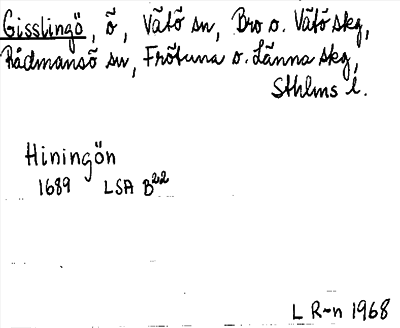 Gisslingö, ö, Vätö sn, Bro o. Vätö skg,
Rådmansö sn, Frötuna o. Länna skg,
Sthlms l.
Hiningön
1689 LSA B22
L R-n 1968